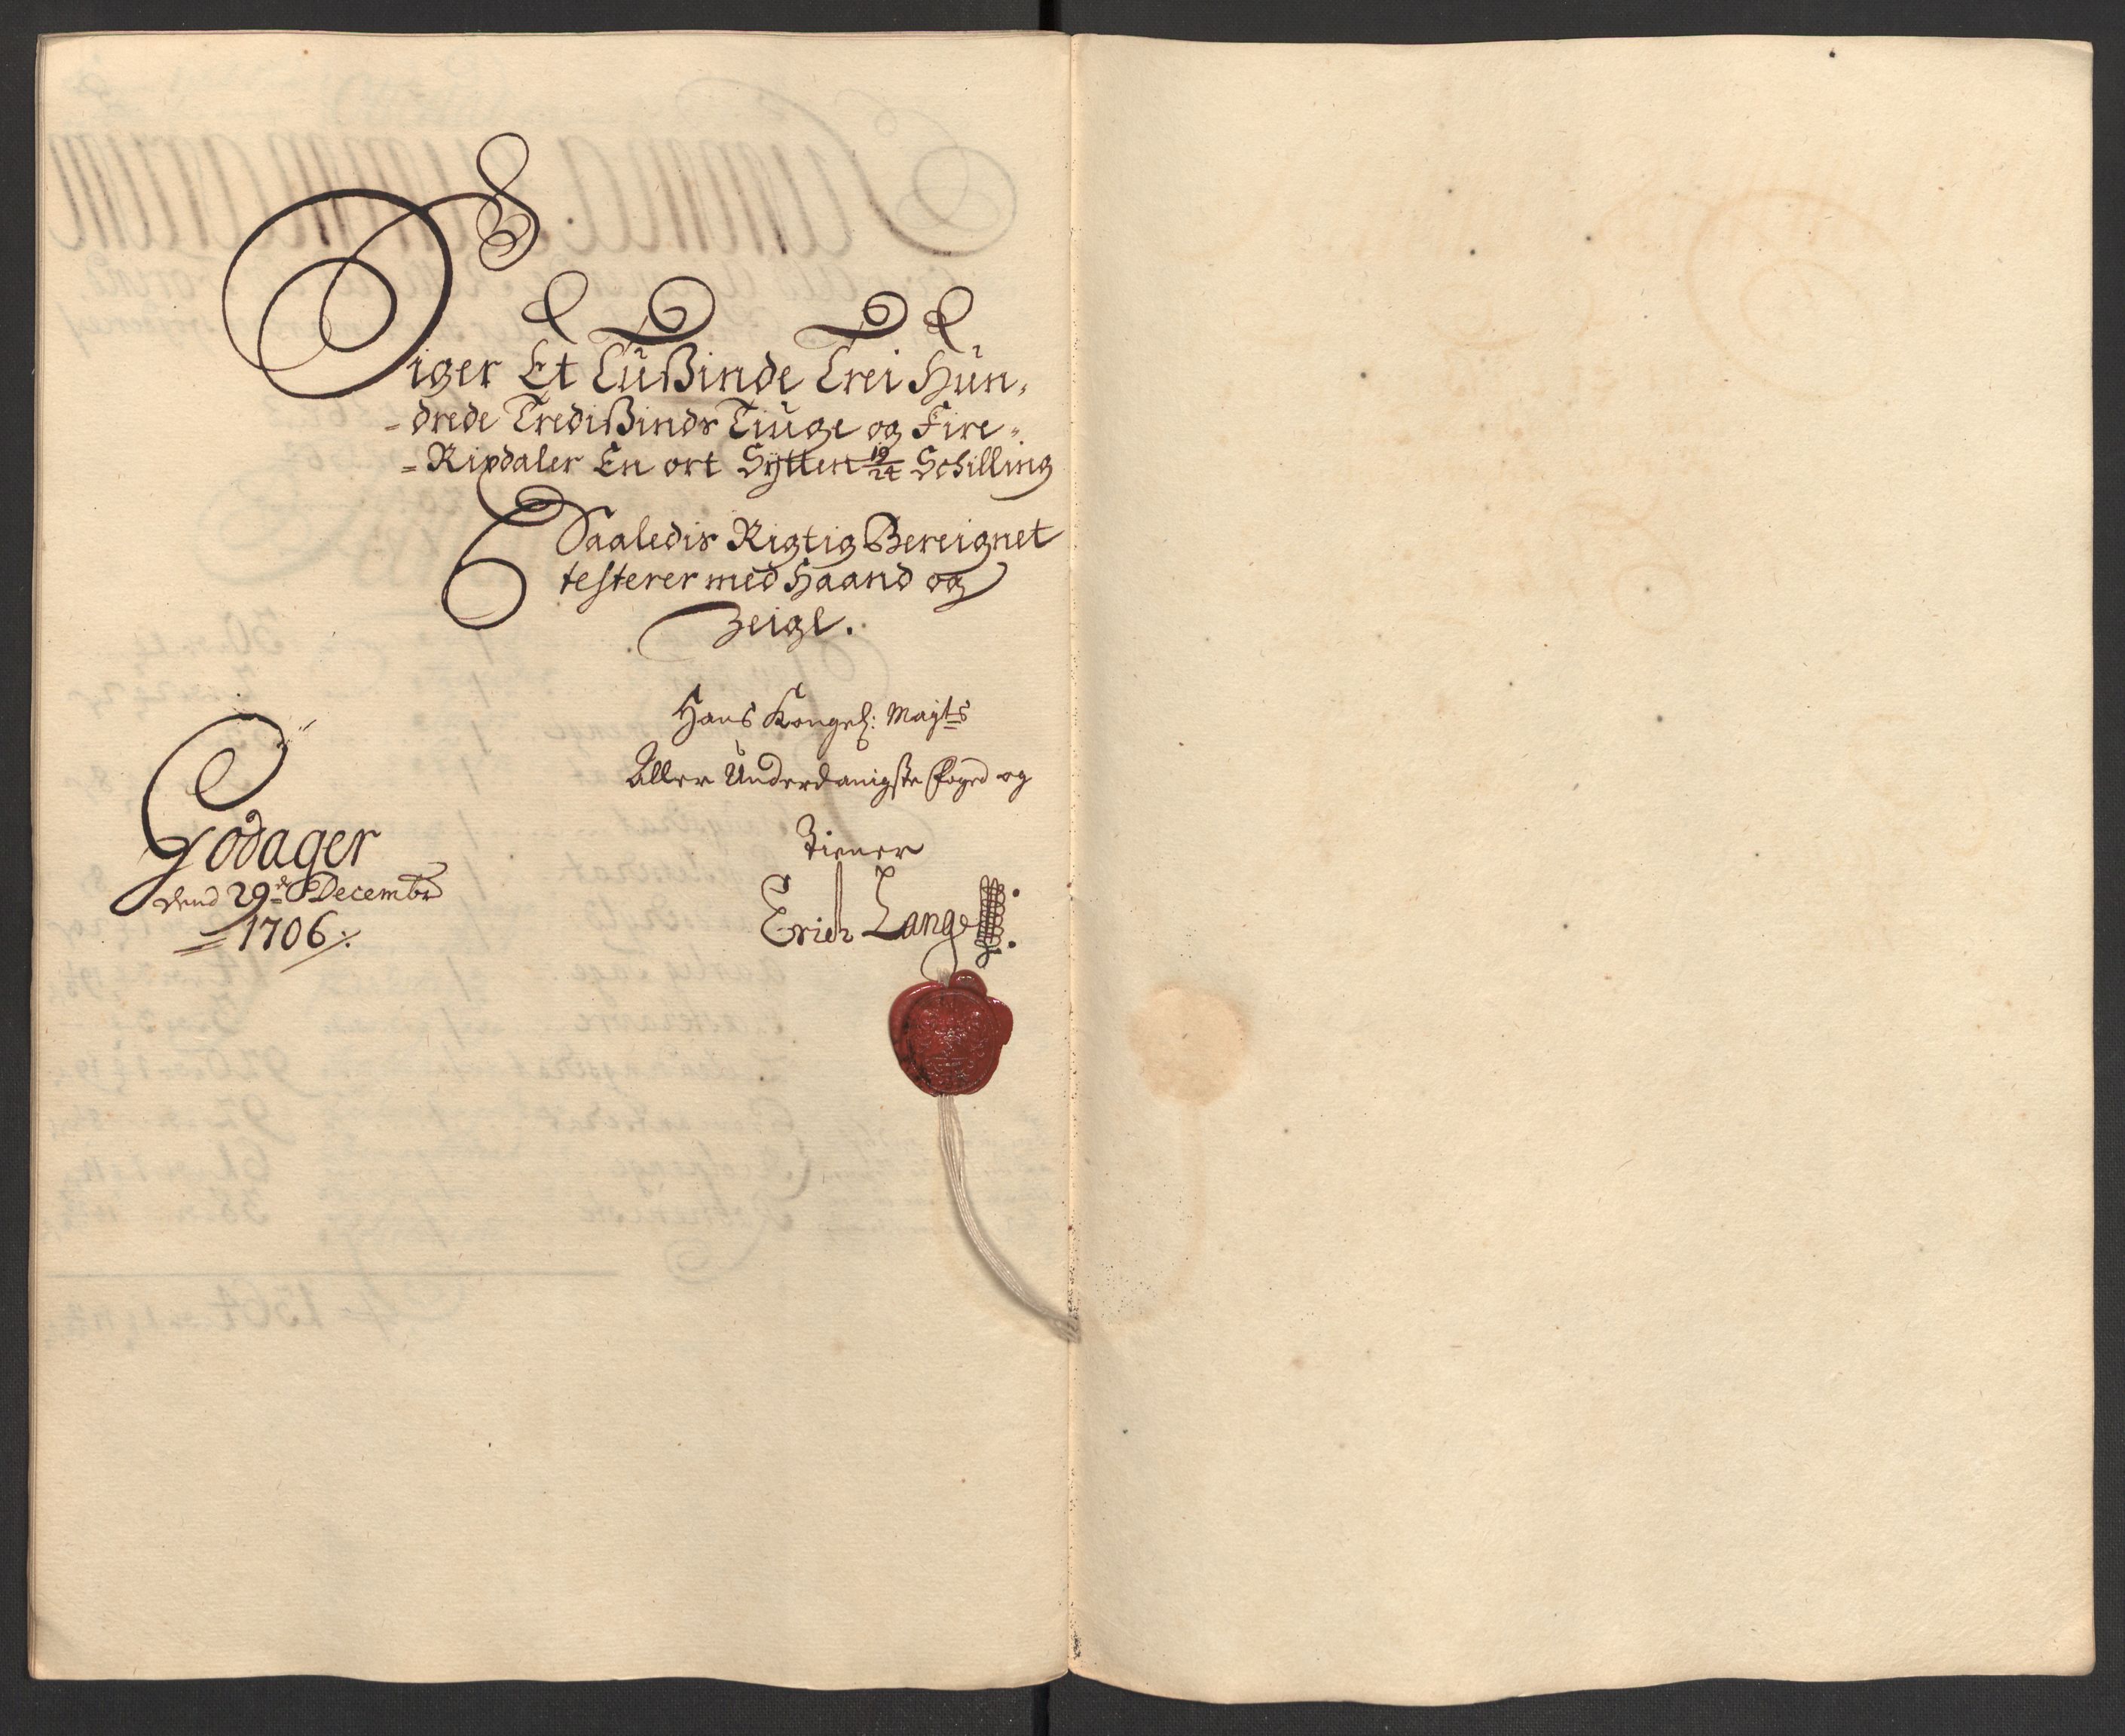 Siger Et Tüßinde Trei Hün-
-drede Tredißinds Tiüge og Fire-
=Rixdaler En ort Sÿtten 19/24 Schilling
Saaledis Rigtig Bereignet
testerer med Haand og
Zeigl.
Hans Kongel: Mayts
Aller Underdanigste Foged og
Tiener
Erich Lange
Godager
dend 29de Decembr
1706